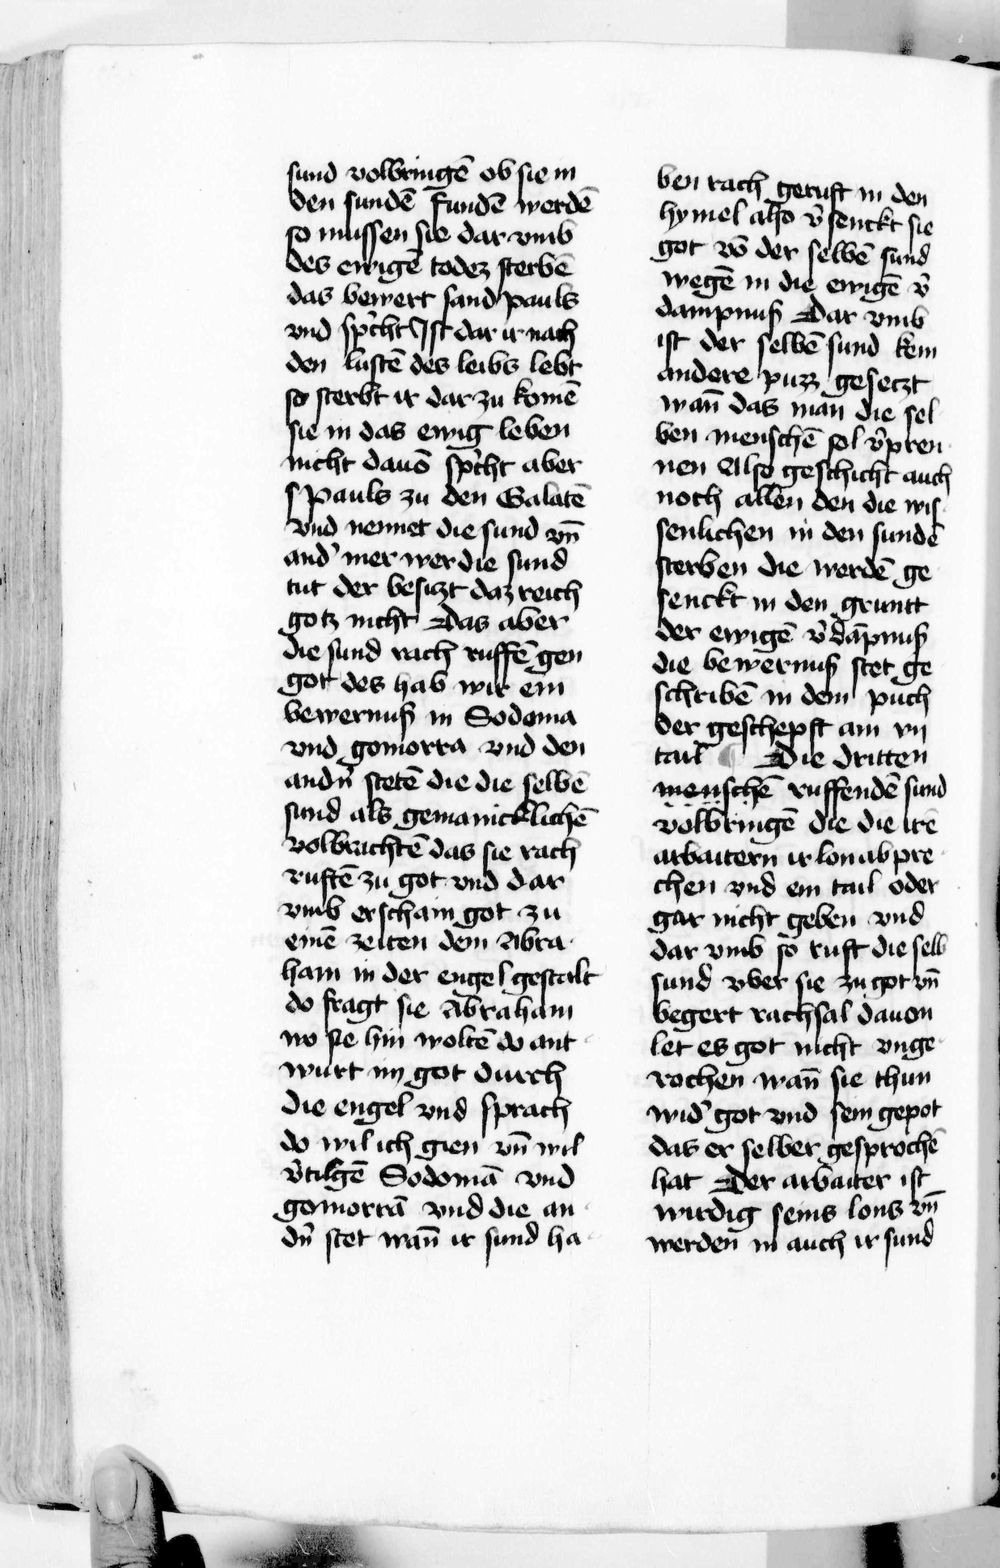 sund volbringē ob sie in
den sundē fundē werdē
so mussen sie dar vmb
des ewigē todez sterbē
das bewert sand pauls
vnd sp̄cht Ist dar ir nach
den lustē des leibs lebt
so sterbt ir dar zu komē
sie in das ewig leben
nicht dauō sp̄cht aber
s Pauls zu den Galatē
vnd nennet die sund vn̄
and̓ mer wer die sund
tut der besiczt daz reich
gotz nicht Das aber
die sund rach ruffē gen
got des hab wir ein
bewernuß in Sodoma
vnd gomorra vnd den
andn̓ stetē die die selbē
sund als gemainicklichē
volbrachtē das sie rach
ruftē zu got vnd dar
vmb erschain got zu
einē zeiten dem Abra
ham in der engel gestalt
do fragt sie Abraham
wo sie hin woltē do ant
wurt im got durch
die engel vnd sprach
do wil ich gien vn̄ wil
v̓tilgē Sodomā vnd
gomorrā vnd die an
dn̓ stet wan̄ ir sund ha
ben rach geruft in den
hymel also v̓senckt sie
got vō der selbē sund
wegē in die ewigē v̓
dampnuß Dar vmb
ist der selbē sund kein
andere puzz gesetzt
wan̄ das man die sel
ben menschē sol v̓pren
nen Also geschicht auch
noch allen den die wis
senlichen in den sundē
sterben die werdē ge
senckt in den gruntt
der ewigē v̓dāpnuß
die bewernuß stet ge
schribē in dem puch
der geschepft am vij
tail ¶ Die dritten
menschē ruffendē sund
volbringē die die irē
arbaitern ir lon abpre
chen vnd ein tail oder
gar nicht geben vnd
dar vmb so ruft die selb
sund vber sie zu got vn̄
begert rachsal dauon
let es got nicht vnge
rochen wan̄ sie thun
wid̓ got vnd sein gepot
das er selber gesprochē
hat Der arbaiter ist
wirdig seins lons vn̄
werden in auch ir sund